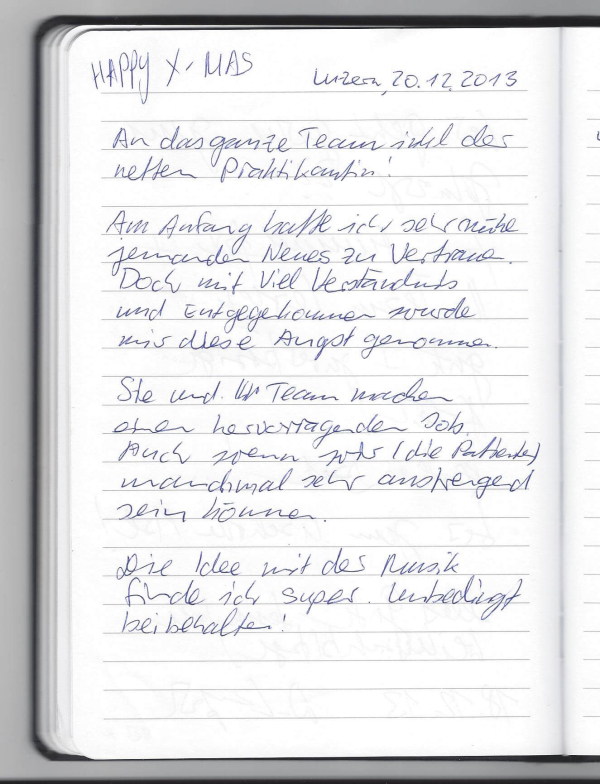 HAPPY X-MAS
Luzern, 20.12.2013
An das ganze Team inkl der
netten Praktikantin!
Am Anfang hatte ich sehr mühe
jemanden Neues zu Vertrauen.
Doch mit Viel Verständnis
und Entgegekommen wurde
mir diese Angst genommen.
Sie und Ihr Team machen
einen hervorragenden Job.
Auch wenn wir (die Patienten)
manchmal sehr anstrengend
sein können.
Die Idee mit der Musik
finde ich super. Unbedingt
beibehalten!